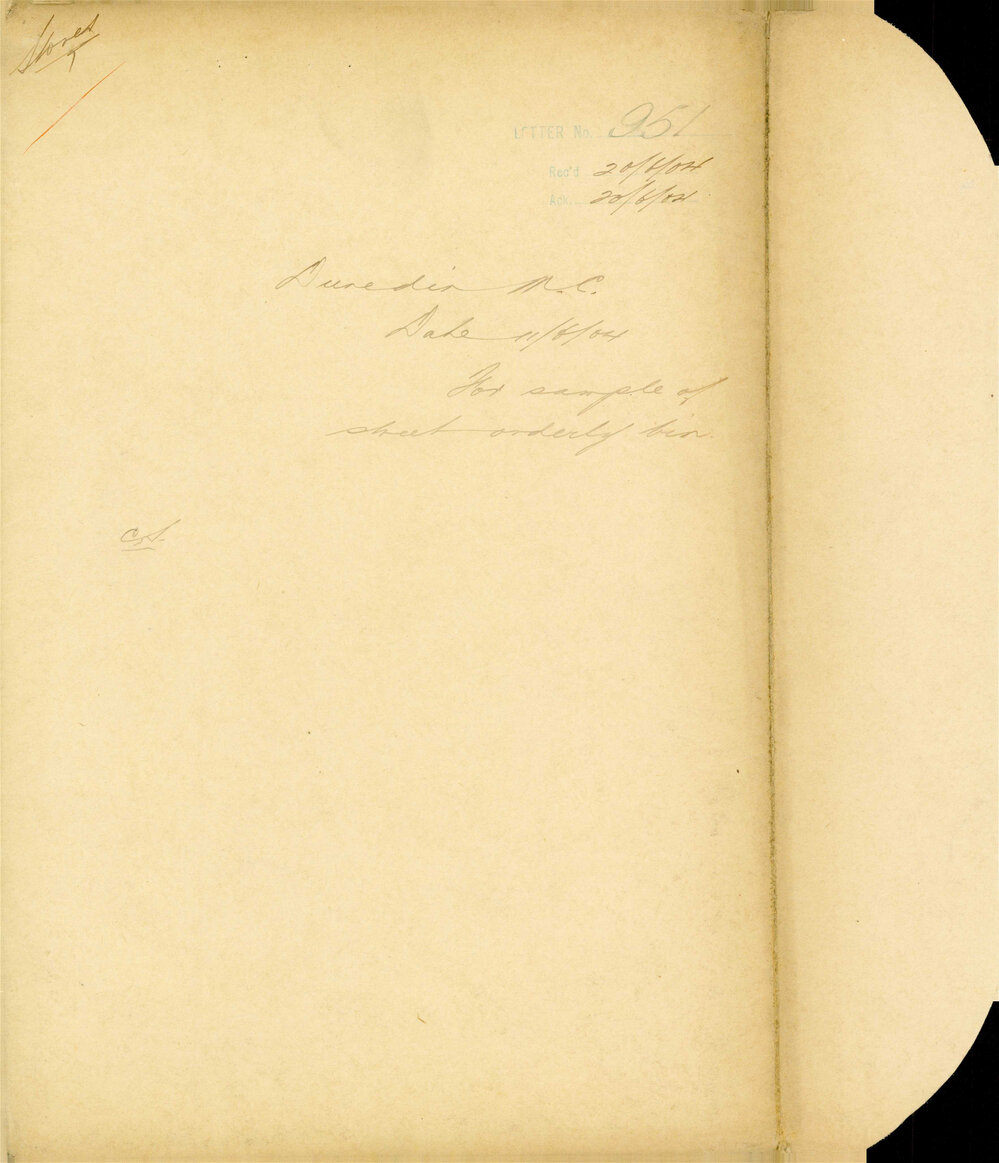 Stores
LETTER No. 951
Rec'd 20/6/04
Ack. 20/6/04
Dunedin M.C.
Date 11/6/04
For sample of
street orderly bin.